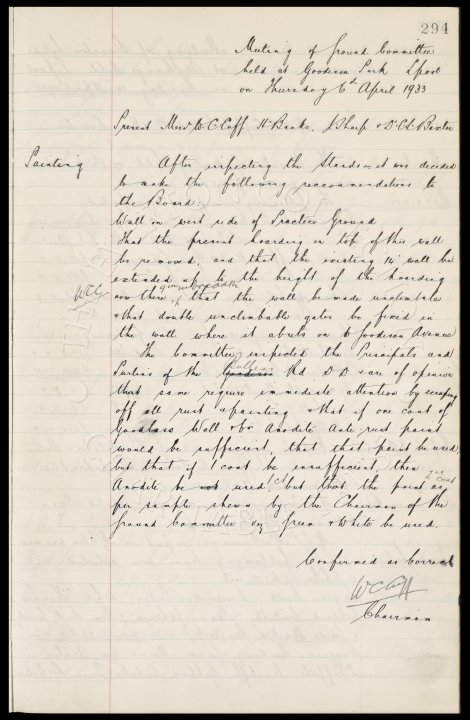 294
Meeting of Ground Committee
held at Goodison Park L'pool
on Thursday 6th April 1933
Present Messrs W. C. Cuff H. Banks, J. Sharp & Dr C. S. Baxter
Painting After inspecting the Stands it was decided
to make the following recommendations to
the Board:-
Wall on west side of Practice Ground
That the present hoarding on top of this wall
be removed, and that the existing wall be
extended up to the height of the hoarding
WCC now there 9in in breadth & that the wall be made unclimbable
& that double unclimbable gates be fixed in
the wall where it abuts on to Goodison Avenue
The Committee inspected the Principals and
Purlins of the Goodison Bullens Rd. D D & are of opinion
that same require immediate attention by scraping
off all rust & painting & that if one coat of
Goodlass Wall & Co Anodite Anti-rust paint
would be sufficient, that that paint be used
but that if 1 coat be insufficient, then
Anodite be not used 1st but that the paint as 2nd coat
per sample shown by the Chairman of the
Ground Committee viz green & white be used.
Confirmed as Correct
W C Cuff
Chairman